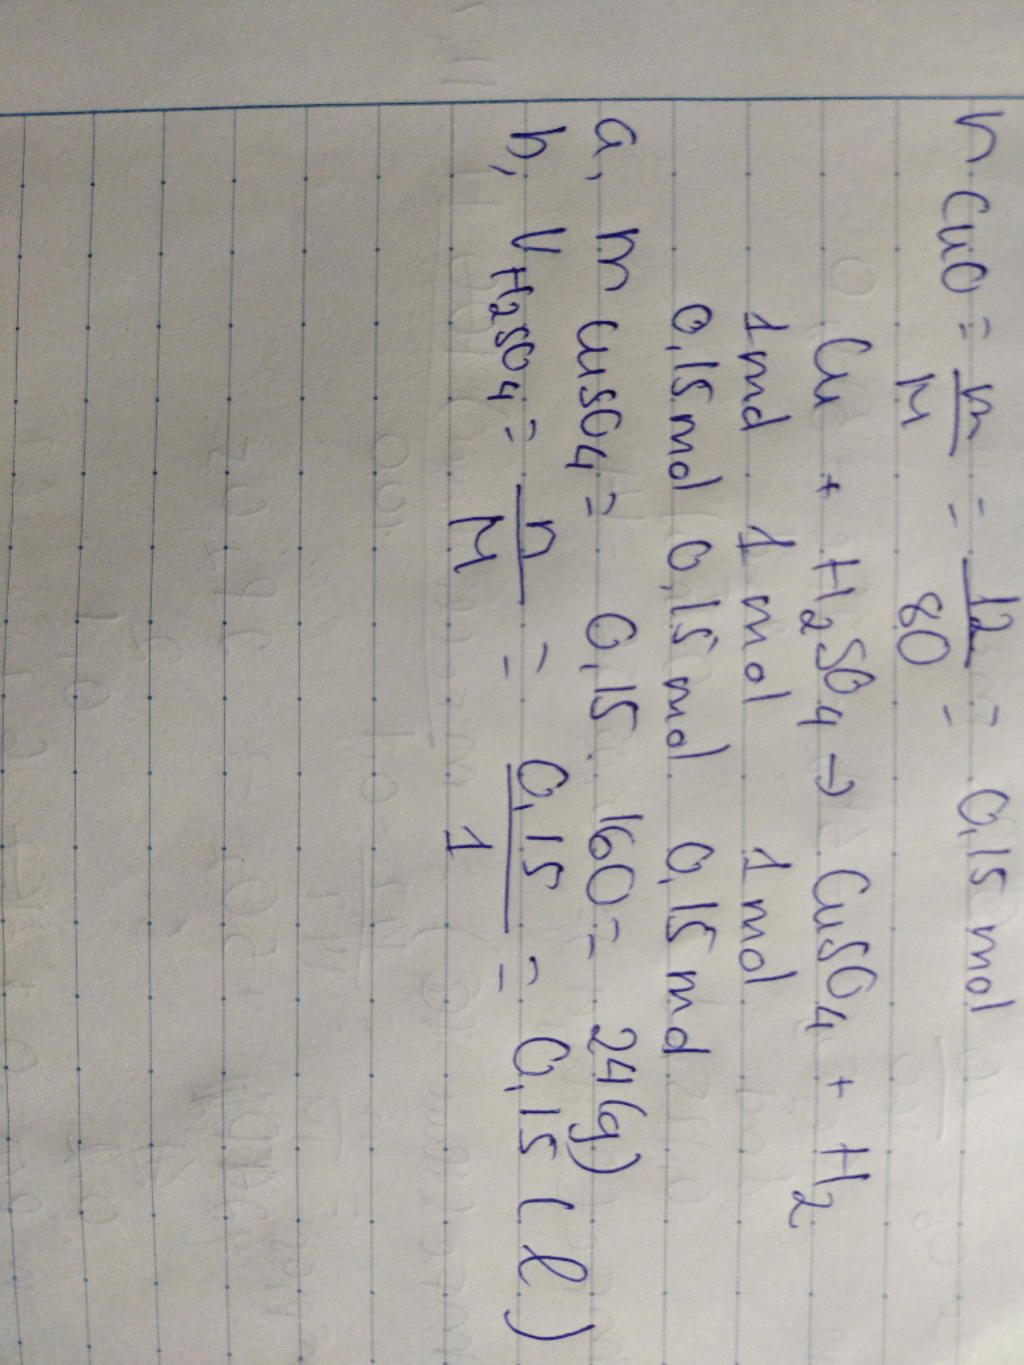 n CuO = m/M = 12/80 = 0,15 mol
Cu + H₂SO₄ → CuSO₄ + H₂
1 mol 1 mol 1 mol
0,15 mol 0,15 mol 0,15 mol
a, m CuSO₄ = 0,15 . 160 = 24 (g)
b, V H₂SO₄ = n/M = 0,15/1 = 0,15 (l)